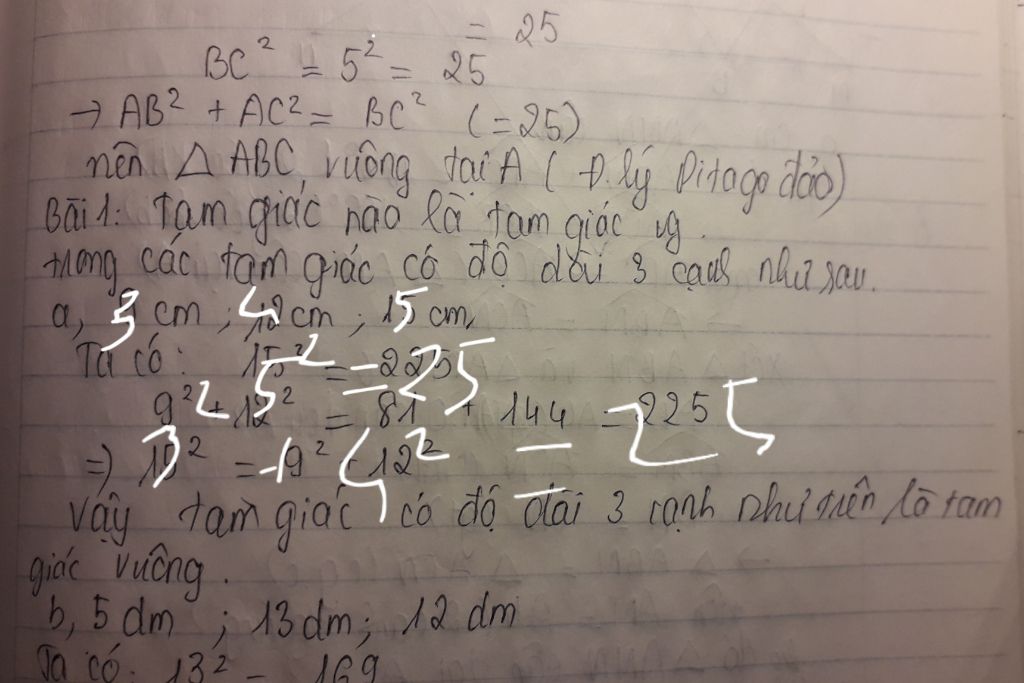 = 25
BC² = 5² = 25
→ AB² + AC² = BC² (= 25)
nên △ ABC vuông tại A ( Đ.lý Pitago đảo)
Bài 1: Tam giác nào là tam giác vg.
trong các tam giác có độ dài 3 cạnh như sau.
a, 9 cm ; 12 cm ; 15 cm,
Ta có: 15² = 225
9² + 12² = 81 + 144 = 225
=> 15² = 9² + 12²
Vậy tam giác có độ dài 3 cạnh như trên là tam
giác vuông.
b, 5 dm ; 13 dm ; 12 dm
Ta có: 13² = 169